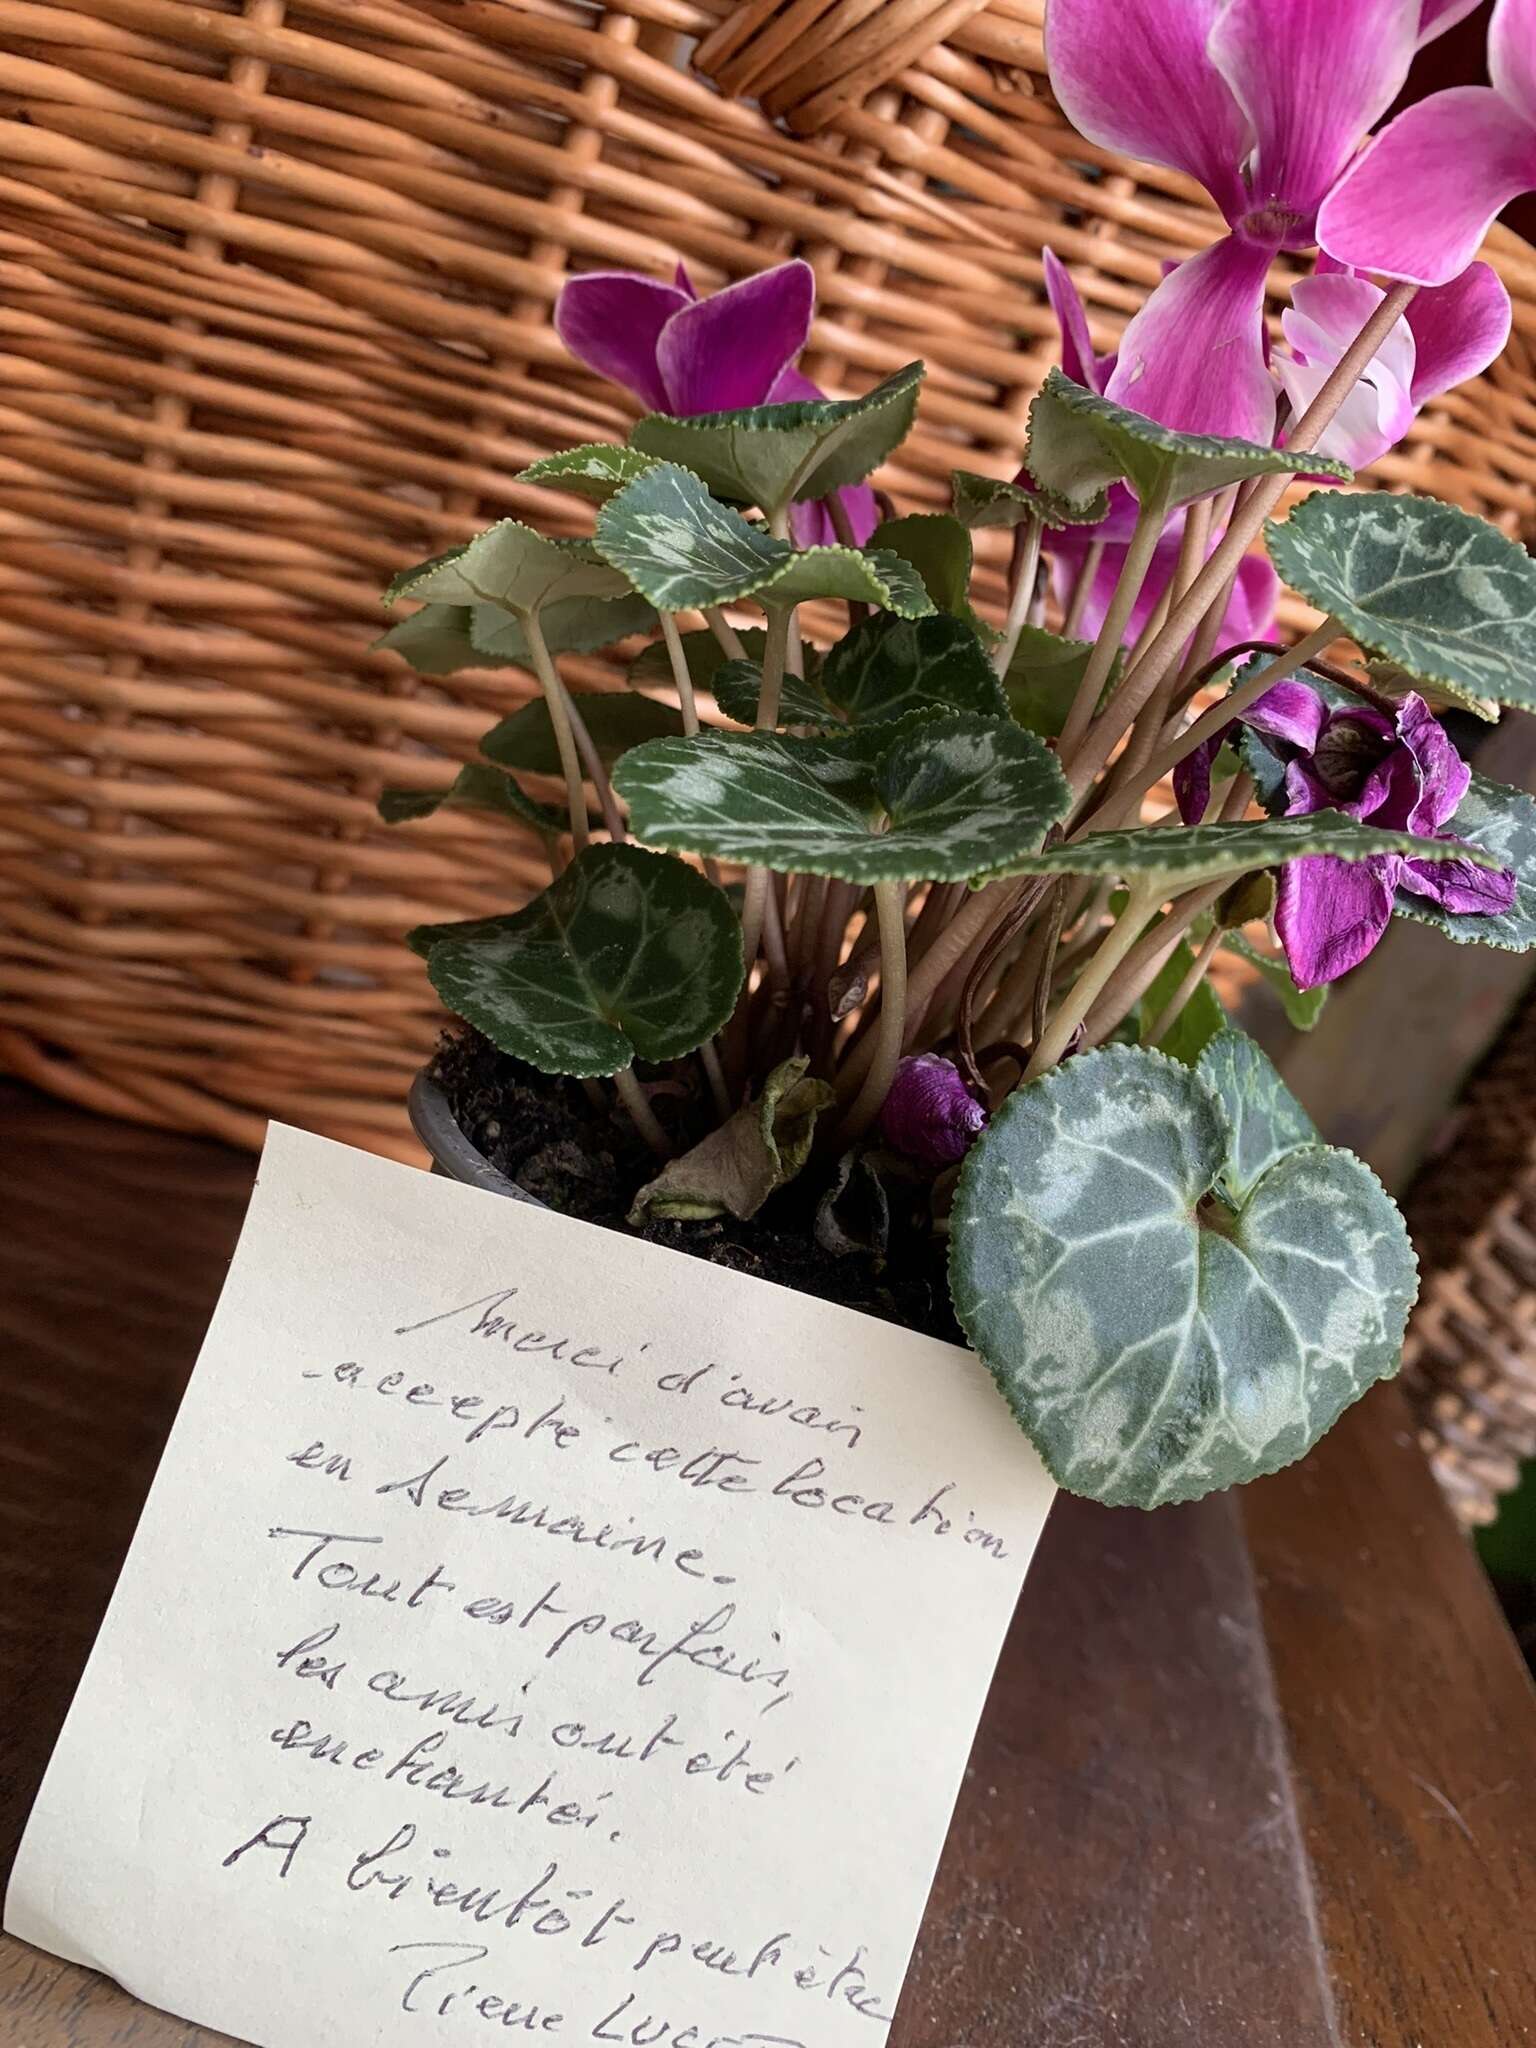 Merci d'avoir
accepté cette location
en semaine.
Tout est parfais,
les amis ont été
enchantés.
A bientôt peut être
Pierre